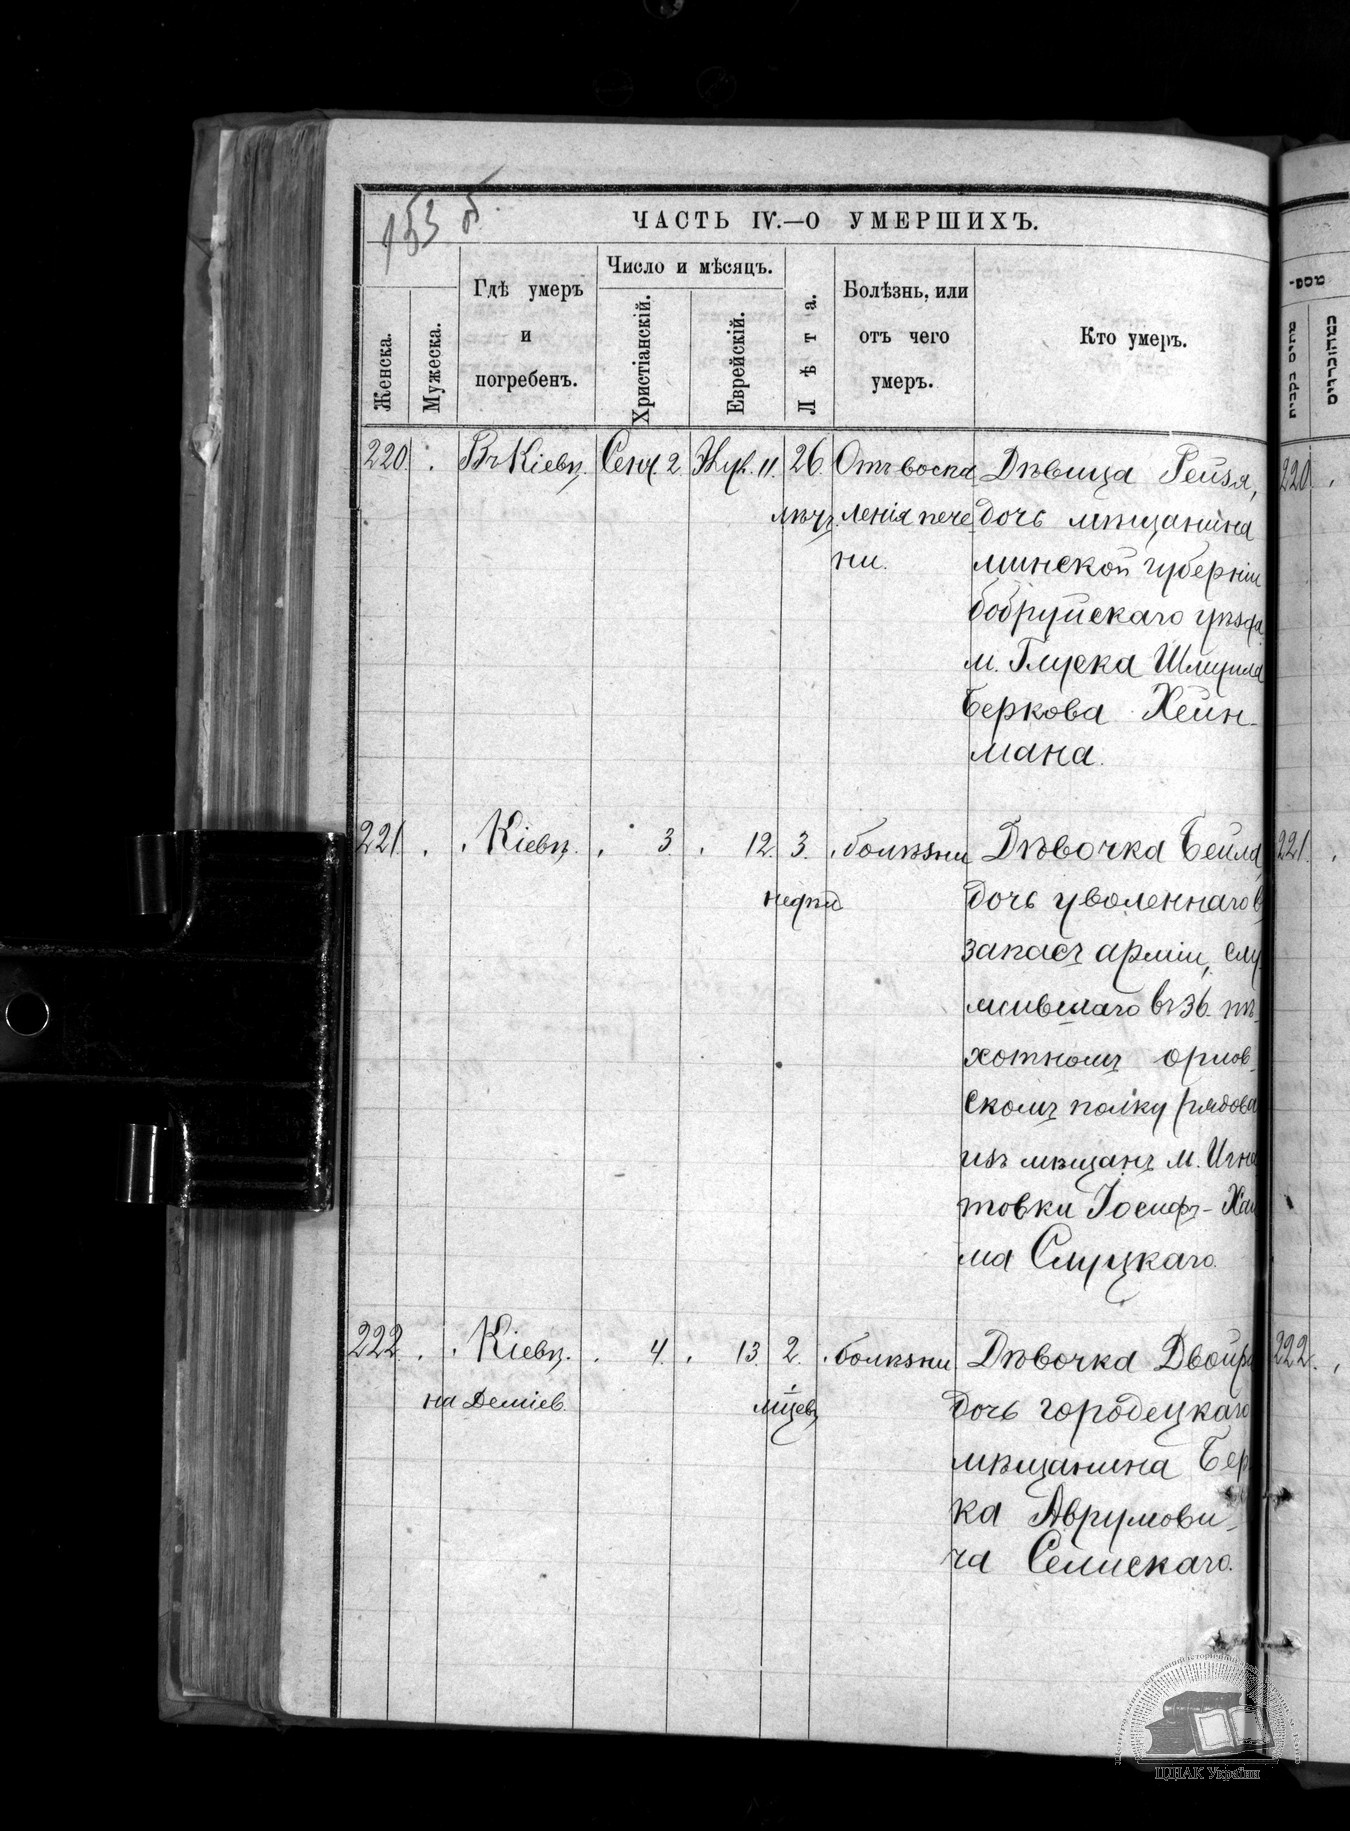 153 б.
ЧАСТЬ IV.—О УМЕРШИХЪ.
Женска.
Мужеска.
Гдѣ умеръ
и
погребенъ.
Число и мѣсяцъ.
Христіанскій.
Еврейскій.
Лѣта.
Болѣзнь, или
отъ чего
умеръ.
Кто умеръ.
220. Въ Кіевѣ. Сент. 2. Элул. 11. 26. Отъ воспа Дѣвица Рейзя,
лѣтъ ленія пече дочь мѣщанина
ни. минской губерніи
бобруйскаго уѣзда
м. Глуска Шмуила
Беркова Хейн-
мана.
221. Кіевѣ. 3. 12. 3. болѣзни Дѣвочка Бейла
недѣл дочь уволеннаго в
запасъ арміи, слу
жившаго въ 36. пѣ-
хотномъ орлов-
скомъ полку рядова
изъ мѣщанъ м. Игна
товки Іосифъ-Хаи
ма Слуцкаго.
222. Кіевѣ. 4. 13. 2. болѣзни Дѣвочка Двойра
на Деміев. мѣцевъ дочь городецкаго
мѣщанина Бер
ка Аврумови-
ча Селискаго.
220
221.
222.
ЦДІАК України